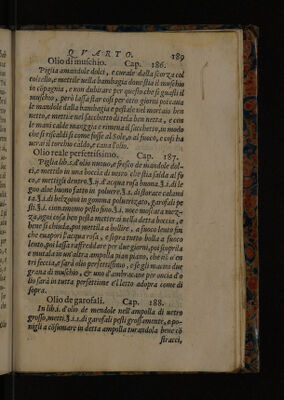 QVARTO. 189
Olio di muschio. Cap. 186.
Piglia amandole dolci, e curale dalla scorza col
coltello, e mettile nella bambagia doue sia il muschio
in cōpagnia, e non dubitare per questo che si guasti il
muschio, però lassa star così per otto giorni poi caua
le mandole dalla bambagia e pestale nel mortaio ben
netto, e mettile nel sacchetto di tela ben netta, e con
le mani calde maneggia e rimena il sacchetto, in modo
che si riscaldi sì come fosse al Sole, o al fuoco, e così ha
uer il torchio caldo, e caua l'olio.
Olio reale perfettissimo. Cap. 187.
Piglia lib. d'olio nuouo, e fresco de mandole dol-
ci, e mettilo in una boccia di uetro che stia salda al fo
co, e mettigli dentro d'acqua rosa buona. di le
gno aloe buono fatto in poluere. di storace calami
ta. di belzoino in gomma poluerizato, garofali pe
sti. cinnamomo pesto fino. noce moscata mez-
za, ogni cosa ben pesta metter ai nella detta boccia, e
bene si chiuda, poi mettila a bollire, a fuoco lento fin
che euapori l'acqua rosa, e sopra tutto bolla a fuoco
lento, poi lassa raffreddare per due giorni, poi scoprila
e mutala in un'altra ampolla pian piano, chè nō u'en
tri feccia, e sarà olio perfettissimo, e se gli macini due
grana di muschio, & uno d'ambracane per oncia d'o
lio sarà in tutta perfettione e l'atto adopra come di
sopra.
Olio de garofali. Cap. 188.
In lib. d'olio de mendole nell'ampolla di uetro
grosso, metti di garofali pesti grossamente, e po-
nigli a cōsumare in detta ampolla turandola bene cō
stracci,